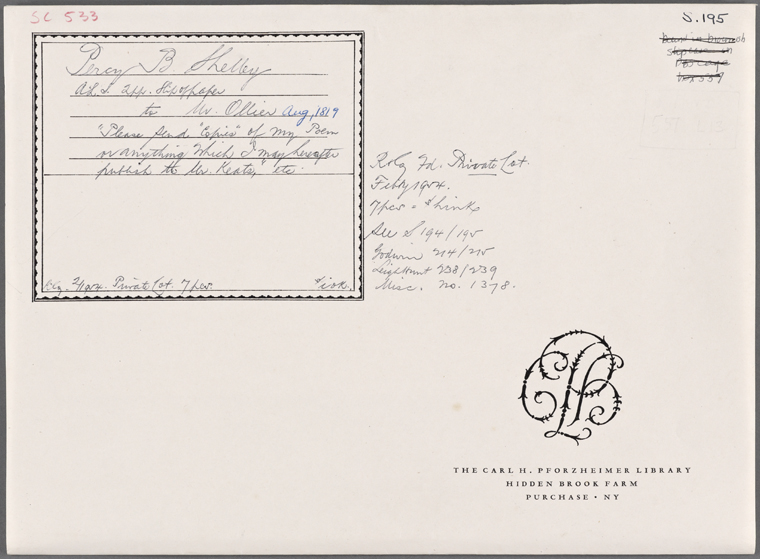 SC 533
S. 195
Percy B Shelley
A.L.S. 2pp. Slip of paper
to Mr. Ollier Aug, 1819
"Please send "Copies" of my Poem
or anything which I may hereafter
publish to Mr. Keats," etc.
2/1904. Private Lot. 7 pcs.
Private Lot.
Feb'y 1904.
7 pcs =
See S. 194/195
Godwin 214/215
Leigh Hunt 238/239
Misc. No. 1378.
THE CARL H. PFORZHEIMER LIBRARY
HIDDEN BROOK FARM
PURCHASE • NY